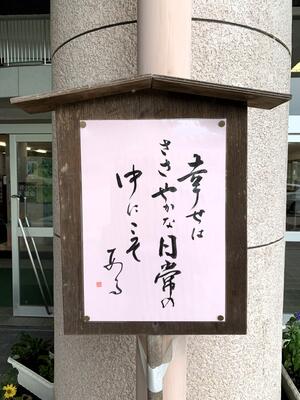 幸せは
ささやかな日常の
中にこそ
ある